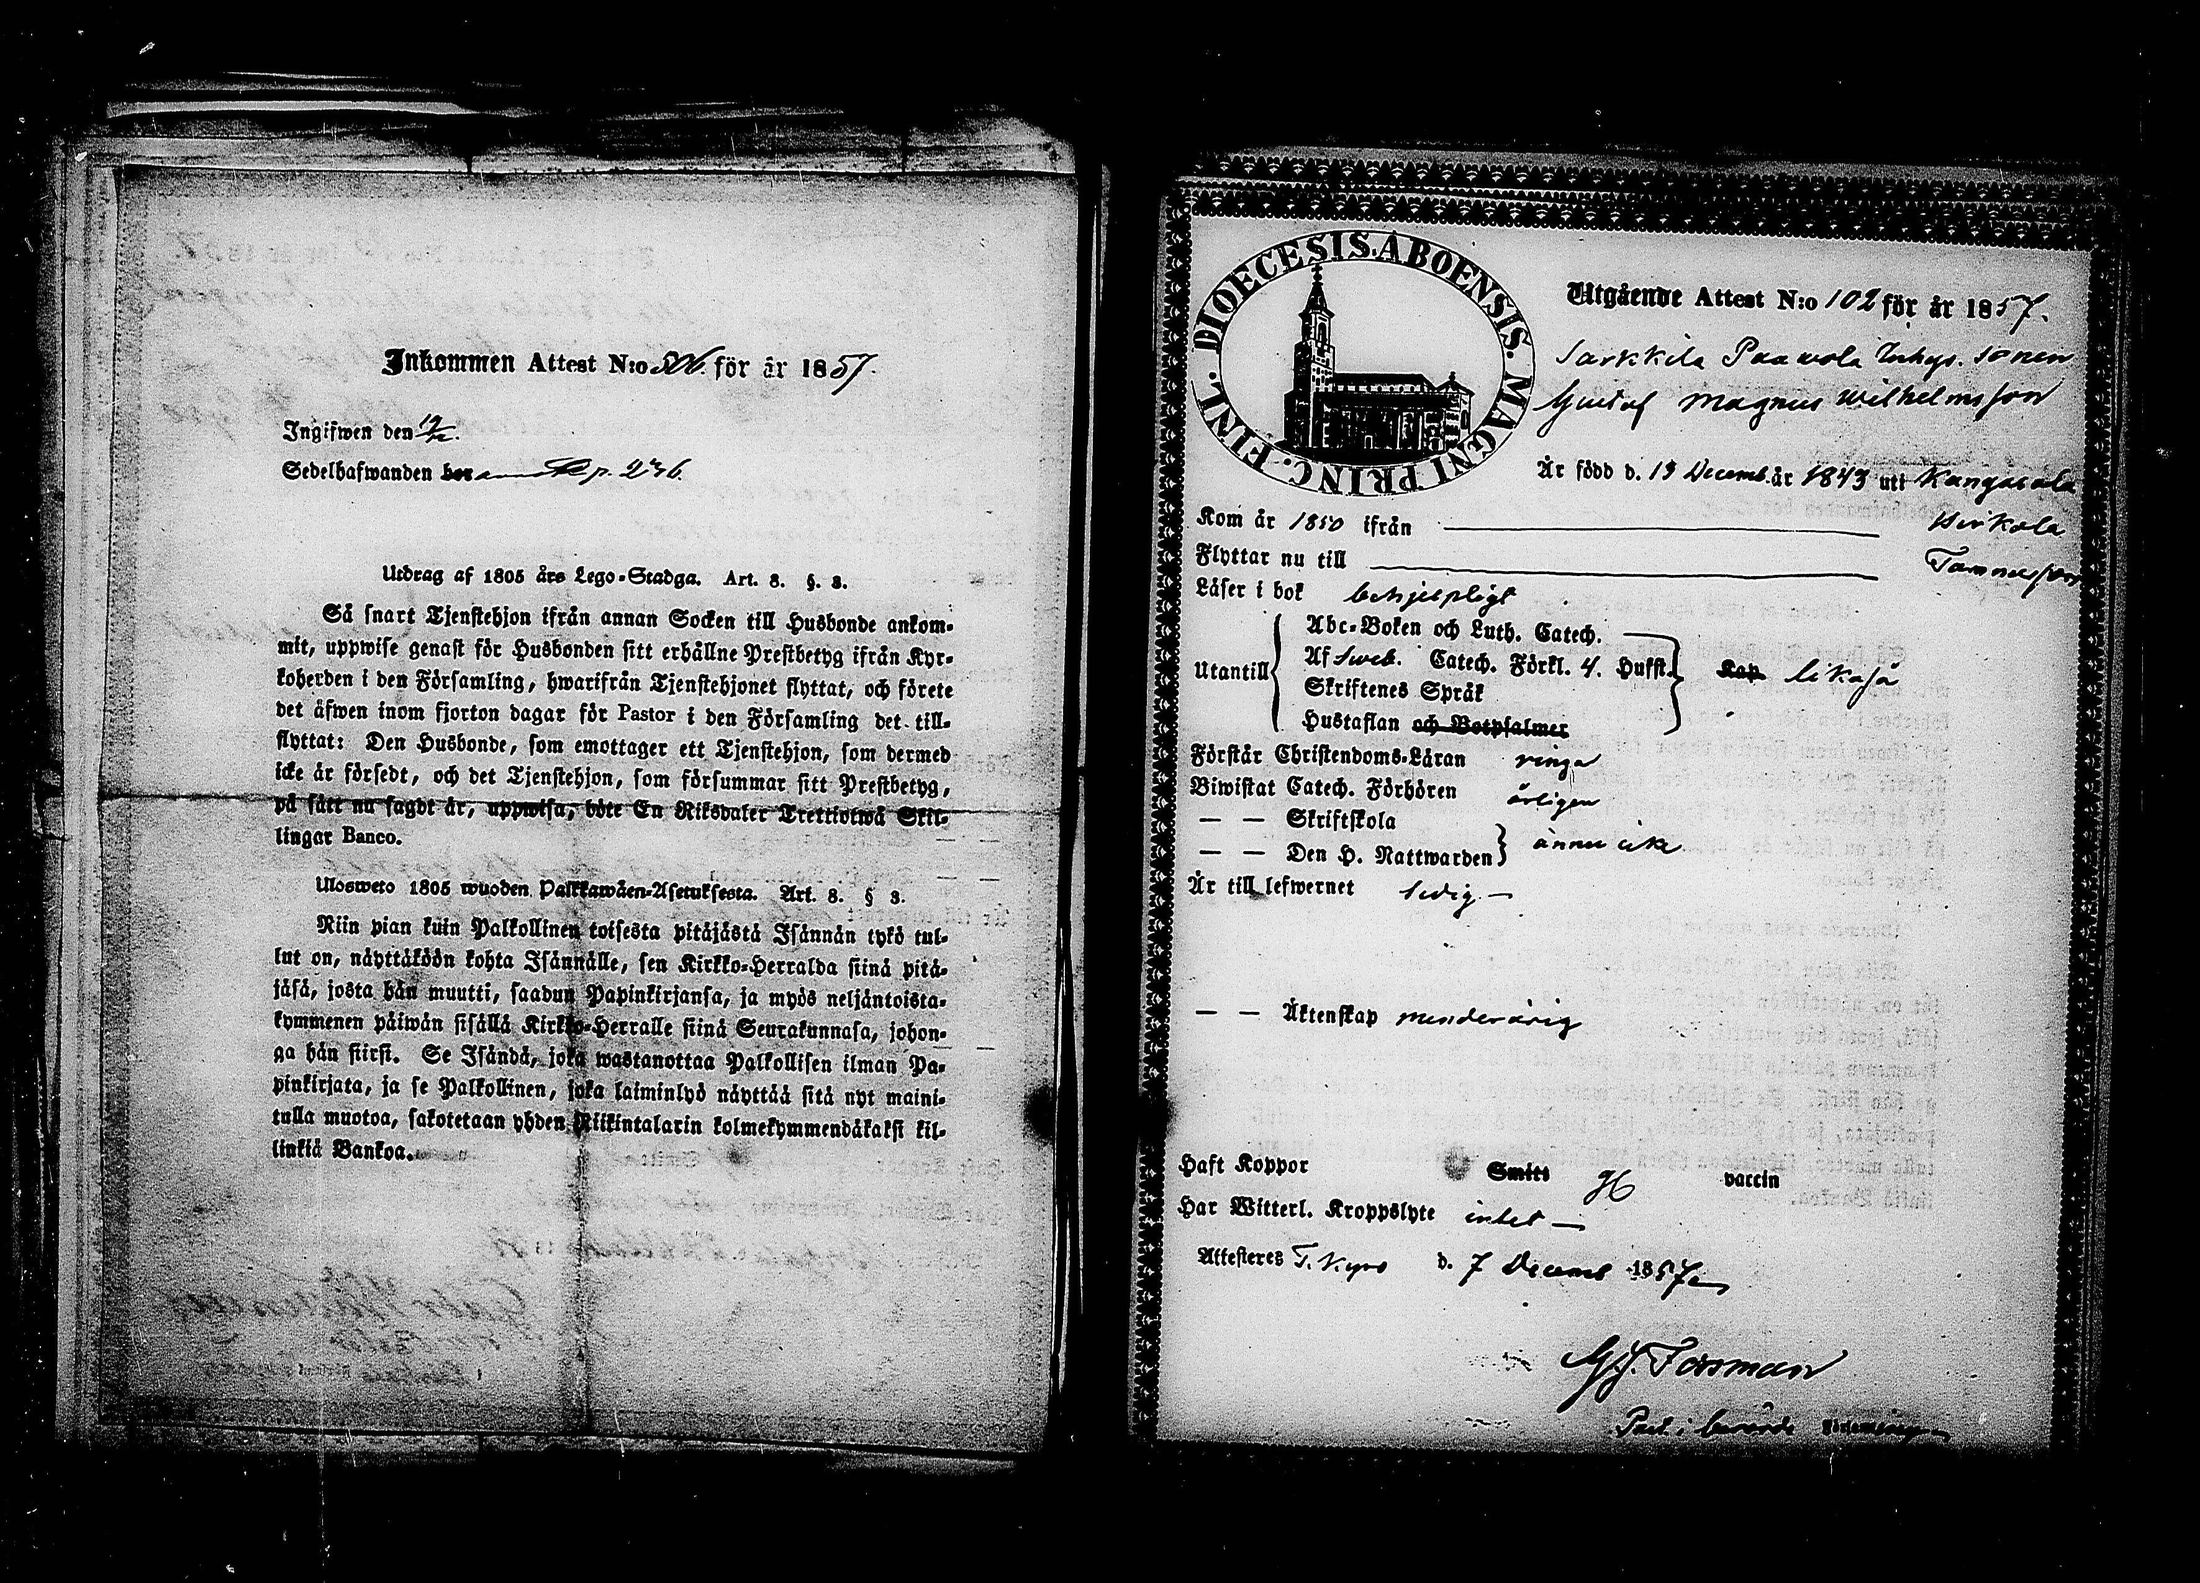 Inkommen Attest N:o 506. för år 1857.
Ingifwen den 19/12.
Sedelhafwanden bor p. 236.
Utdrag af 1805 års Lego-Stadga. Art. 8. §. 3.
Så snart Tjenstehjon ifrån annan Socken till Husbonde ankom-
mit, uppwise genast för Husbonden sitt erhållne Prestbetyg ifrån Kyr-
koherden i den Församling, hwarifrån Tjenstehjonet flyttat, och förete
det äfwen inom fjorton dagar för Pastor i den Församling det till-
flyttat: Den Husbonde, som emottager ett Tjenstehjon, som dermed
icke är försedt, och det Tjenstehjon, som försummar sitt Prestbetyg,
på sätt nu sagdt är, uppwisa, böte En Riksdaler Trettiotwå Skil-
lingar Banco.
Ulosweto 1805 wuoden Palkkawäen-Asetuksesta. Art. 8. § 3.
Niin pian kuin Palkollinen toisesta pitäjästä Isännän tykö tul-
lut on, näyttäköön kohta Isännälle, sen Kirkko-Herralda siinä pitä-
jäsä, josta hän muutti, saadun Papinkirjansa, ja myös neljäntoista-
kymmenen päiwän sisällä Kirkko-Herralle siinä Seurakunnasa, johon-
ga hän siirsi. Se Isändä, joka wastanottaa Palkollisen ilman Pa-
pinkirjata, ja se Palkollinen, joka laiminlyö näyttää sitä nyt maini-
tulla muotoa, sakotetaan yhden Riikintalarin kolmekymmendäkaksi kil-
linkiä Bankoa.
DIOECESIS. ABOENSIS. MAGNI PRINC. FINL.
Utgående Attest N:o 102 för år 1857.
Sarkkila Paawola Inhys. sonen
Gustaf Magnus Wilhelmsson
Är född d. 15 Decemb. år 1843 uti Kangasala
Kom år 1850 ifrån Birkala
Flyttar nu till Tammerfors
Läser i bok behjelpligt
Utantill
Abc-Boken och Luth. Catech.
Af Sweb. Catech. Förkl. 4. Hufst.
Skriftenes Språk
Hustaflan och Botpsalmer
likaså
Förstår Christendoms-Läran ringa
Biwistat Catech. Förhören årligen
— — Skriftskola
— — Den H. Nattwarden
ännu icke
Är till lefwernet sedig —
— — Äktenskap minderårig
Haft Koppor Smitt vaccin
Har Witterl. Kroppslyte intet —
Attesteres T. Kyro d. 7 Decemb 1857
G. J. Forsman
Past. i berörde Församling